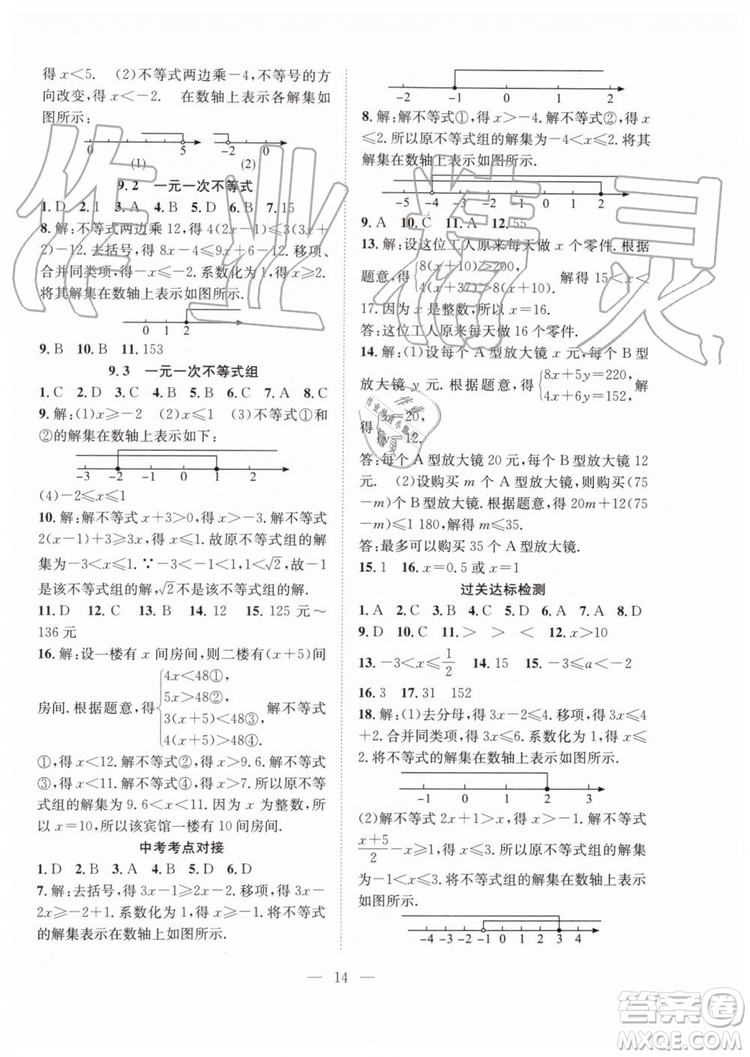 得 x＜5. (2)不等式两边乘－4，不等号的方
向改变，得 x＜－2. 在数轴上表示各解集如
图所示：
0 5 －2 0
(1) (2)
9.2 一元一次不等式
1. D 2. 1 3. A 4. B 5. B 6. B 7. 15
8. 解：不等式两边乘12，得 4(2x－1)≤3(3x
＋2)－12. 去括号，得 8x－4≤9x＋6－12. 移项、
合并同类项，得－x≤－2. 系数化为1，得 x≥2.
将其解集在数轴上表示如图所示.
0 1 2
9. B 10. B 11. 153
9.3 一元一次不等式组
1. C 2. D 3. C 4. D 5. A 6. B 7. C 8. B
9. 解：(1)x≥－2 (2)x≤1 (3)不等式①和②
的解集在数轴上表示如下：
－3 －2 －1 0 1 2 3
(4)－2≤x≤1
10. 解：解不等式 x＋3＞0，得 x＞－3. 解不等式
2(x－1)＋3≥3x，得 x≤1. 故原不等式组的解集
为－3＜x≤1. ∵－3＜－1＜1，1＜√2，故 x＝－1
是该不等式组的解，√2不是该不等式组的解.
11. D 12. A 13. B 14. 2 15. 125 元～
136 元
16. 解：设一楼有 x 间房间，则二楼有(x＋5)间
4x＜48①，
5x＞48②，
房间. 根据题意，得
3(x＋5)＜48③，
4(x＋5)＞48④.
解不等式
①，得 x＜12. 解不等式②，得 x＞9.6. 解不等式
③，得 x＜11. 解不等式④，得 x＞7. 所以原不等
式组的解集为 9.6＜x＜11. 因为 x 为整数，所以
x＝10. 所以该宾馆一楼有 10 间房间.
中考考点对接
1. D 2. A 3. D 4. B 5. D 6. D
7. 解：去括号，得 3x－1≥2x－2. 移项，得 3x－
2x≥－2＋1. 合并同类项，得 x≥－1. 将不等式
的解集表示在数轴上如图所示.
－2 －1 0 1 2
8. 解：解不等式①，得 x＞－4. 解不等式②，得 x
≤2. 所以原不等式组的解集为－4＜x≤2. 将其
解集在数轴上表示如图所示.
－4 －2 －1 0 1 2
9. A 10. C 11. A 12. 55
13. 解：设这位工人原来每天做 x 个零件. 根据
题意，得
8(x＋10)＞200，
解得 15＜x＜
17. 因为 x 是整数，所以 x＝16.
答：这位工人原来每天做 16 个零件.
14. 解：(1)设每个 A 型放大镜 x 元，每个 B 型
放大镜 y 元. 根据题意，得
8x＋5y＝220，
4x＋6y＝152.
解
得
x＝20，
y＝12.
答：每个 A 型放大镜 20 元，每个 B 型放大镜 12
元. (2)设购买 m 个 A 型放大镜，则购买(75
－m)个 B 型放大镜. 根据题意，得 20m＋12(75
－m)≤1 180，解得 m≤35.
答：最多可以购买 35 个 A 型放大镜.
15. 1 16. x＝0.5或x＝1
过关达标检测
1. A 2. D 3. B 4. C 5. B 6. A 7. C 8. C
9. D 10. C 11. ＞ ＞ ＜ 12. x＞10
13. －3＜x≤1/2 14. 15 15. －3≤a＜－2
16. 3 17. 31 152
18. 解：(1)去分母，得 3x－2≤4. 移项，得 3x≤4
＋2. 合并同类项，得 3x≤6. 系数化为1，得 x≤
2. 将不等式的解集在数轴上表示如图所示.
－1 0 1 2 3
(2)解不等式 2x＋1＞x，得 x＞－1. 解不等式
(x＋5)/2－x≥1，得 x≤3. 则不等式组的解集是－1
＜x≤3. 将不等式组的解集在数轴上表示如图
所示.
－4 －3 －2 －1 0 1 2 3 4
— 14 —
作业精灵
答案圈
MXQE.COM